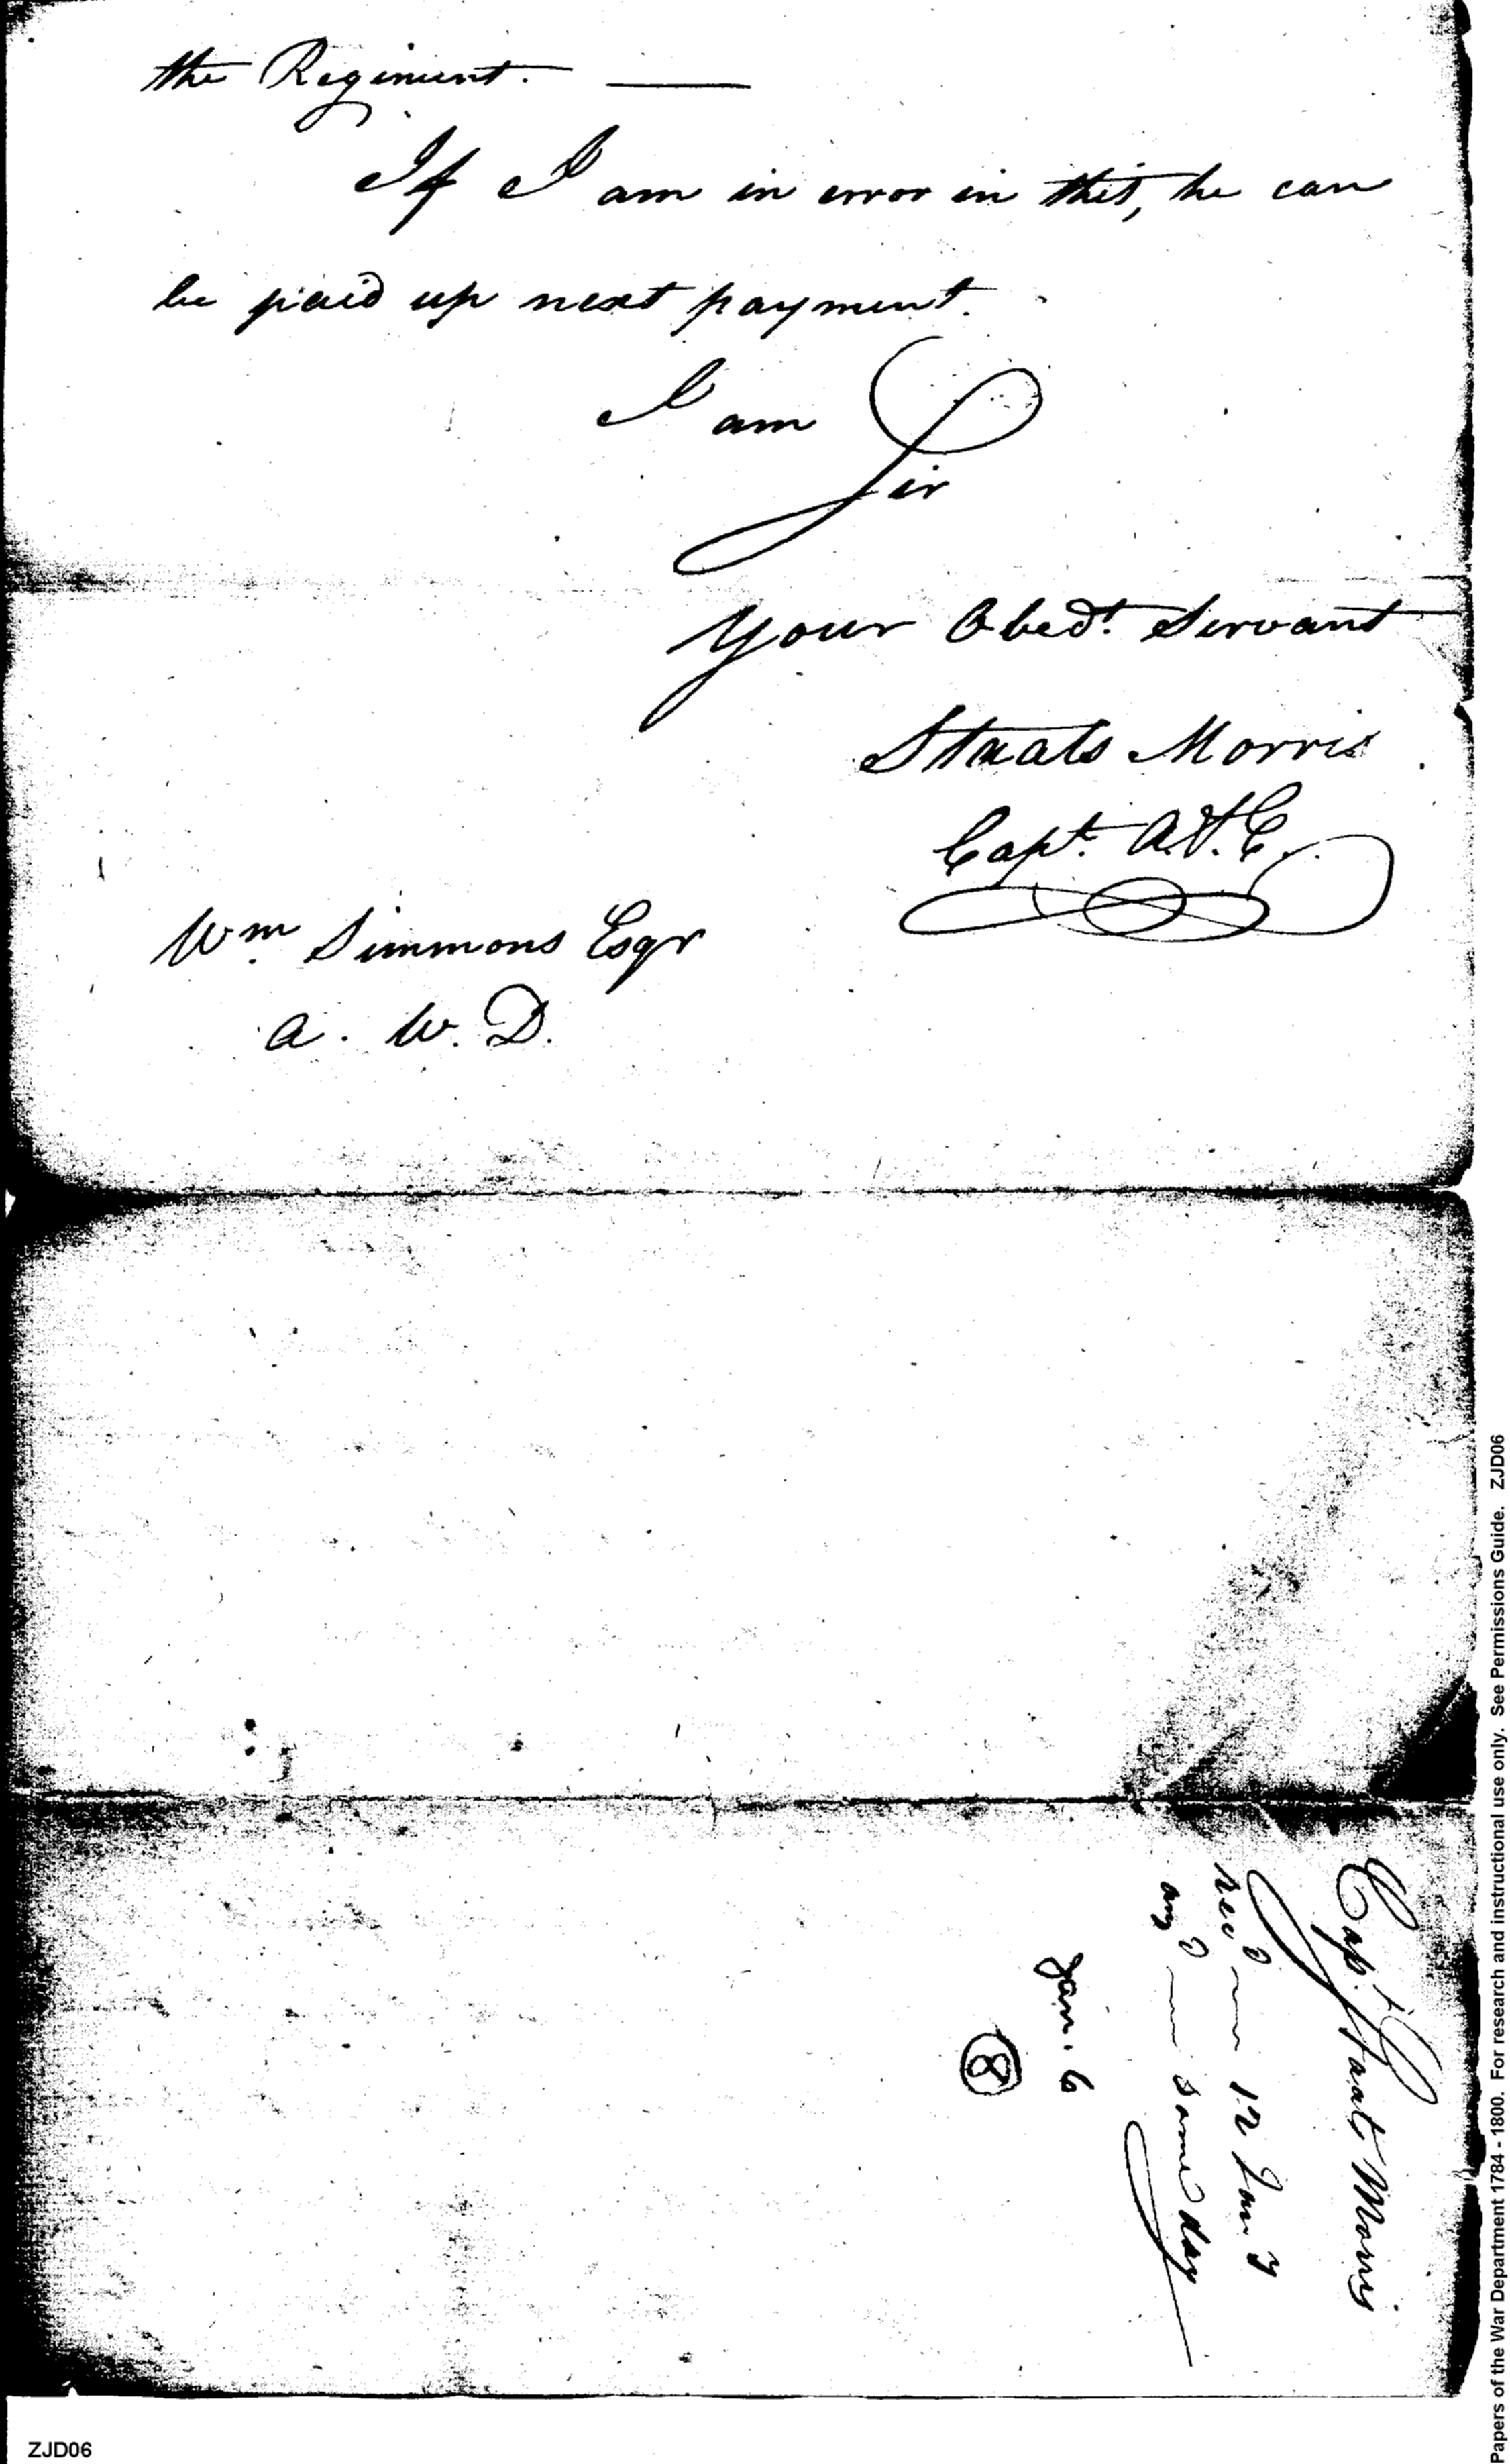 the Regiment. —
If I am in error in this, he can
be paid up next payment.
I am
Sir
Your Obedt. Servant
Staats Morris
Capt. A&E.
Wm. Simmons Esqr
A. W. D.
Capt Staats Morris
recd — 12 Jany
ansd — same day
Jan. 6
8
Papers of the War Department 1784 - 1800. For research and instructional use only. See Permissions Guide. ZJD06
ZJD06